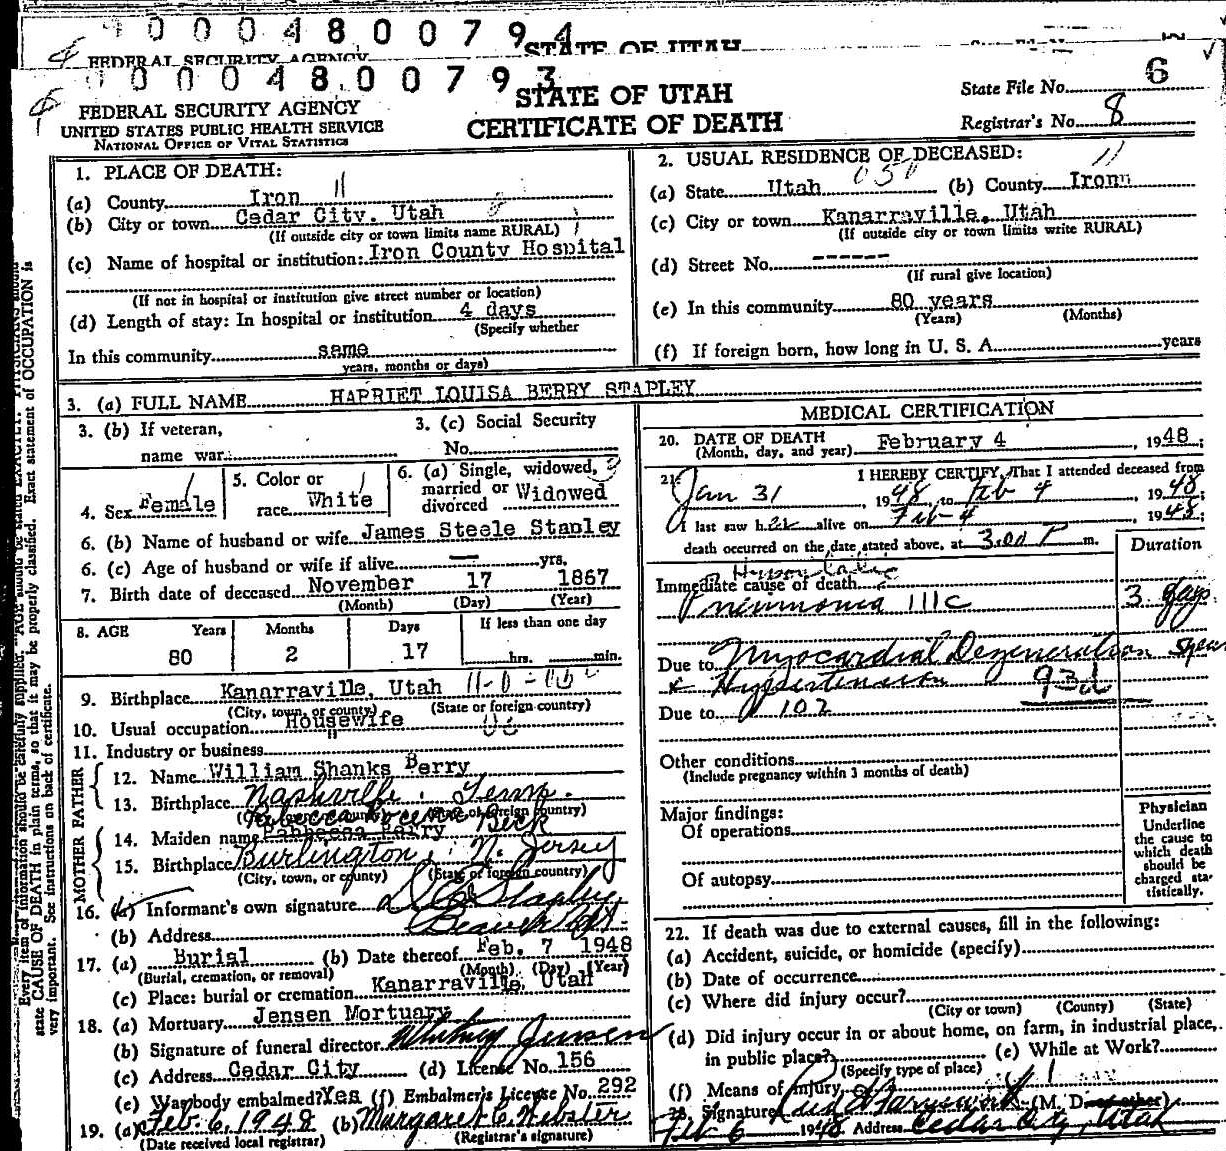 0 0 0 4 8 0 0 7 9 4
STATE OF UTAH
FEDERAL SECURITY AGENCY
0 0 0 4 8 0 0 7 9 3
STATE OF UTAH
CERTIFICATE OF DEATH
State File No. 6
Registrar's No. 8
FEDERAL SECURITY AGENCY
UNITED STATES PUBLIC HEALTH SERVICE
NATIONAL OFFICE OF VITAL STATISTICS
1. PLACE OF DEATH:
(a) County Iron 11
(b) City or town Cedar City, Utah
(If outside city or town limits name RURAL)
(c) Name of hospital or institution: Iron County Hospital
(If not in hospital or institution give street number or location)
(d) Length of stay: In hospital or institution 4 days
(Specify whether
In this community same
years, months or days)
2. USUAL RESIDENCE OF DECEASED:
(a) State Utah 050 (b) County Iron 11
(c) City or town Kanarraville, Utah
(If outside city or town limits write RURAL)
(d) Street No. ------
(If rural give location)
(e) In this community 80 years
(Years) (Months)
(f) If foreign born, how long in U. S. A. years
3. (a) FULL NAME HARRIET LOUISA BERRY STAPLEY
3. (b) If veteran,
name war
3. (c) Social Security
No.
4. Sex Female
5. Color or
race White
6. (a) Single, widowed,
married or
divorced Widowed
6. (b) Name of husband or wife James Steele Stapley
6. (c) Age of husband or wife if alive — yrs.
7. Birth date of deceased November 17 1867
(Month) (Day) (Year)
8. AGE Years Months Days If less than one day
80 2 17 hrs. min.
9. Birthplace Kanarraville, Utah
(City, town, or county) (State or foreign country)
10. Usual occupation Housewife
11. Industry or business "
FATHER
12. Name William Shanks Berry
13. Birthplace Nashville, Tenn.
(City, town, or county) (State or foreign country)
MOTHER
14. Maiden name Rebecca Beck
Rabbecca Perry
15. Birthplace Burlington, N. Jersey
(City, town, or county) (State or foreign country)
16. (a) Informant's own signature Stapley
(b) Address Beaver Ut.
17. (a) Burial (b) Date thereof Feb. 7 1948
(Burial, cremation, or removal) (Month) (Day) (Year)
(c) Place: burial or cremation Kanarraville, Utah
18. (a) Mortuary Jensen Mortuary
(b) Signature of funeral director Whitney Jensen
(c) Address Cedar City (d) License No. 156
(e) Was body embalmed? Yes (f) Embalmer's License No. 292
19. (a) Feb. 6, 1948 (b) Margaret C. Webster
(Date received local registrar) (Registrar's signature)
MEDICAL CERTIFICATION
20. DATE OF DEATH
(Month, day, and year) February 4, 1948
21. I HEREBY CERTIFY, That I attended deceased from
Jan 31, 1948, to Feb 4, 1948;
I last saw her alive on Feb 4, 1948;
death occurred on the date stated above, at 3:00 P m.
Duration
Immediate cause of death Hypostatic
Pneumonia 111c 3 days
Due to Myocardial Degeneration
& Hypertension 93d
Due to 102
Other conditions
(Include pregnancy within 3 months of death)
Major findings:
Of operations
Of autopsy
Physician
Underline
the cause to
which death
should be
charged sta-
tistically.
22. If death was due to external causes, fill in the following:
(a) Accident, suicide, or homicide (specify)
(b) Date of occurrence
(c) Where did injury occur?
(City or town) (County) (State)
(d) Did injury occur in or about home, on farm, in industrial place,
in public place? (e) While at Work?
(Specify type of place)
(f) Means of injury
23. Signature (M. D. or other)
Feb 6 1948 Address Cedar City, Utah
state CAUSE OF DEATH in plain terms, so that it may be properly classified. Exact statement of OCCUPATION is
very important. See instructions on back of certificate.